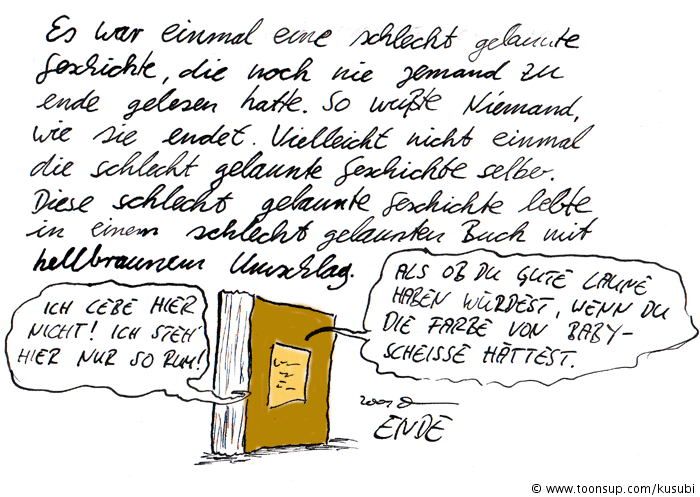 Es war einmal eine schlecht gelaunte
Geschichte, die noch nie jemand zu
ende gelesen hatte. So wußte Niemand,
wie sie endet. Vielleicht nicht einmal
die schlecht gelaunte Geschichte selber.
Diese schlecht gelaunte Geschichte lebte
in einem schlecht gelaunten Buch mit
hellbraunem Umschlag.
ICH LEBE HIER
NICHT! ICH STEH'
HIER NUR SO RUM!
ALS OB DU GUTE LAUNE
HABEN WÜRDEST, WENN DU
DIE FARBE VON BABY-
SCHEISSE HÄTTEST.
ENDE
© www.toonsup.com/kusubi